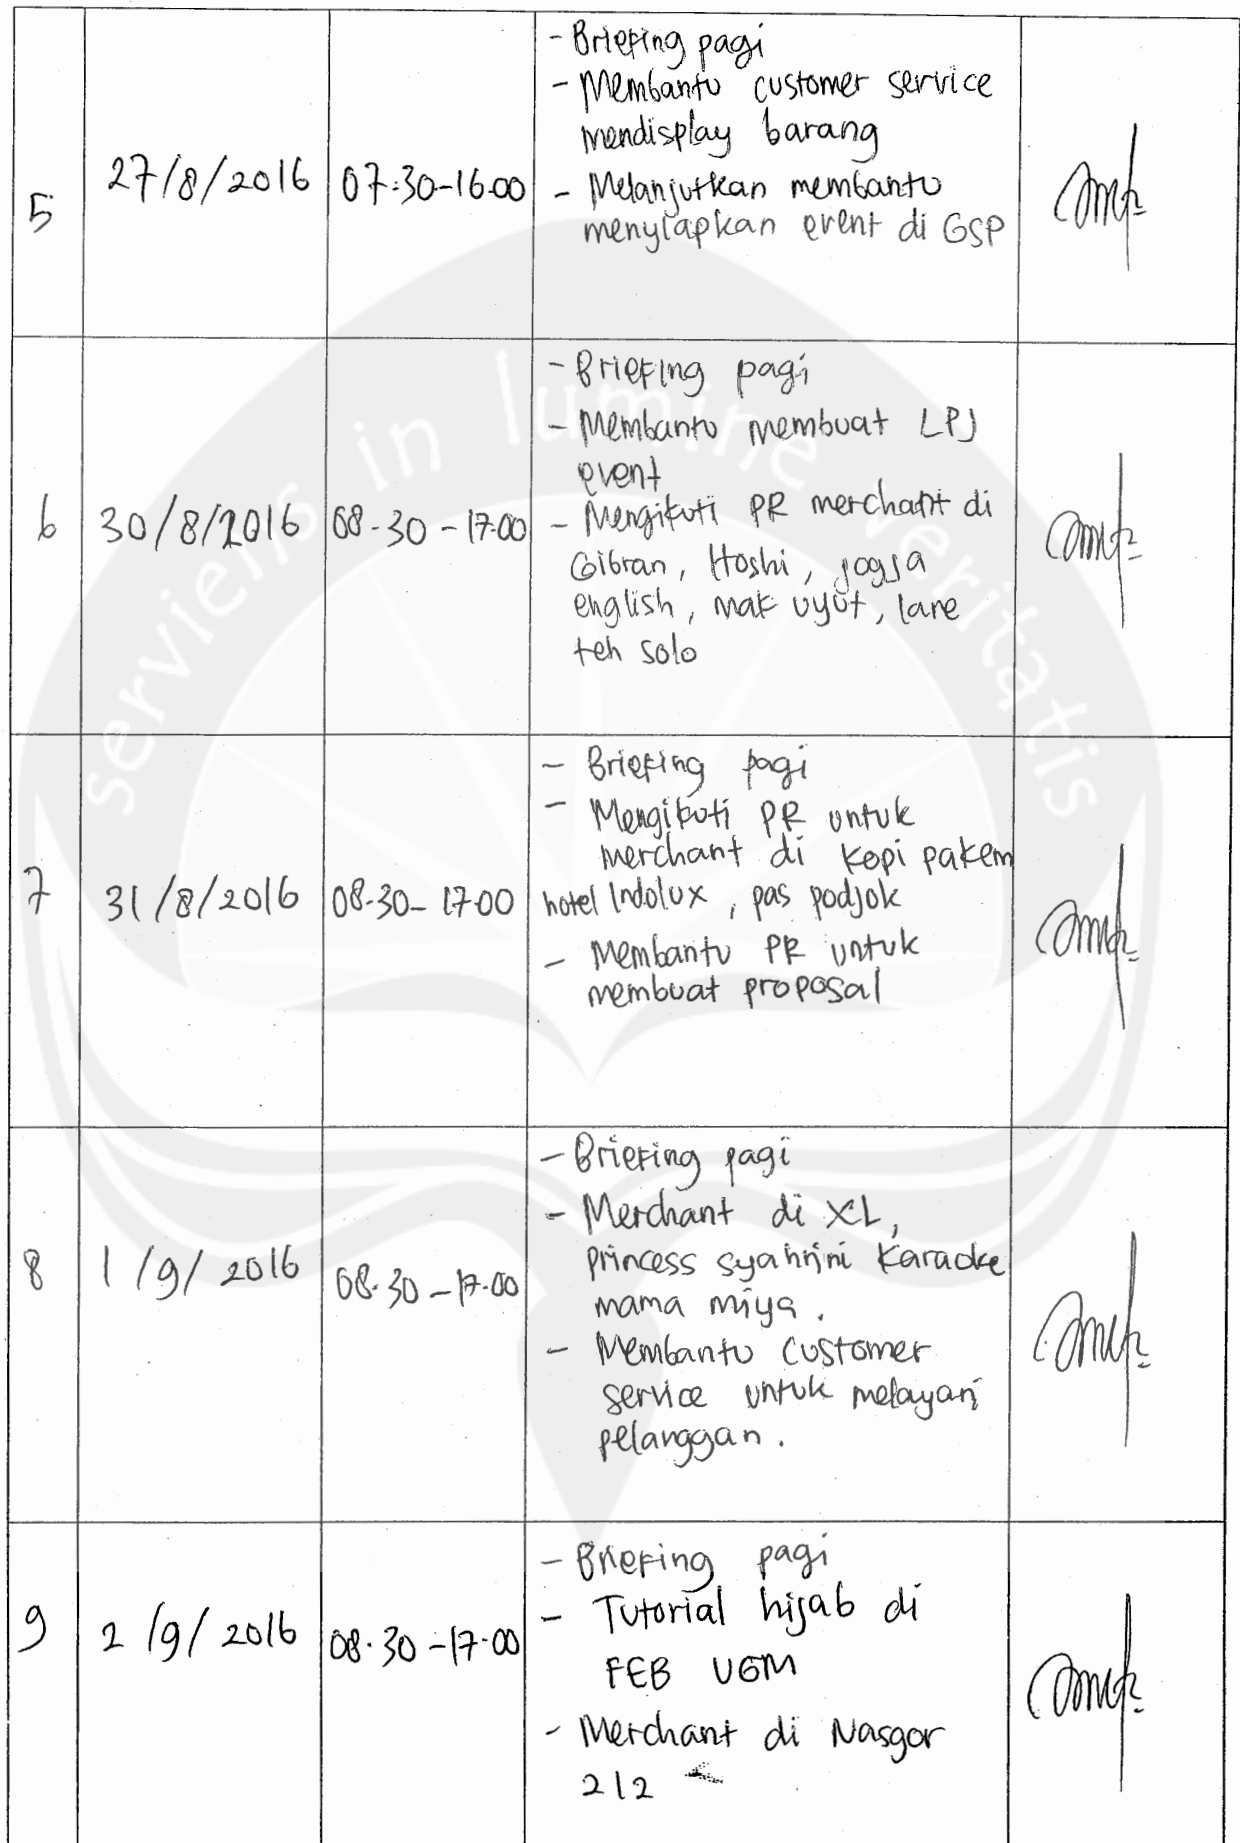 5
27/8/2016
07:30-16.00
- Briefing pagi
- Membantu customer service
mendisplay barang
- Melanjutkan membantu
menyiapkan event di GSP
6
30/8/2016
08-30-17.00
- Briefing pagi
- Membantu membuat LPJ
event
- Mengikuti PR merchant di
Gibran, Hoshi, jogja
english, mak uyut, lare
teh solo
7
31/8/2016
08.30-17.00
- Briefing pagi
- Mengikuti PR untuk
merchant di kopi pakem
hotel Indolux, pas podjok
- Membantu PR untuk
membuat proposal
8
1/9/2016
08.30-17.00
- Briefing pagi
- Merchant di XL,
princess syahrini Karaoke
mama miya.
- Membantu customer
service untuk melayani
pelanggan.
9
2/9/2016
08.30-17.00
- Briefing pagi
- Tutorial hijab di
FEB UGM
- Merchant di Nasgor
212
serviens in lumine veritatis